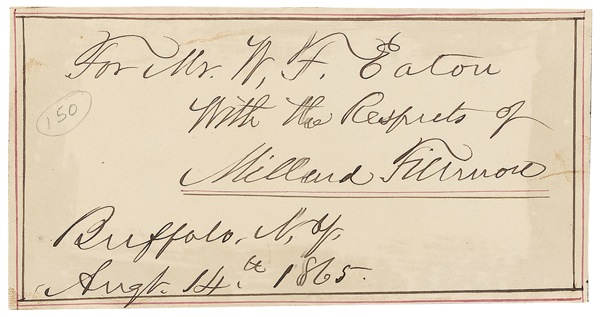 For Mr. W. F. Eaton
150
With the Respects of
Millard Fillmore
Buffalo, N.Y.
Augt. 14.th 1865.